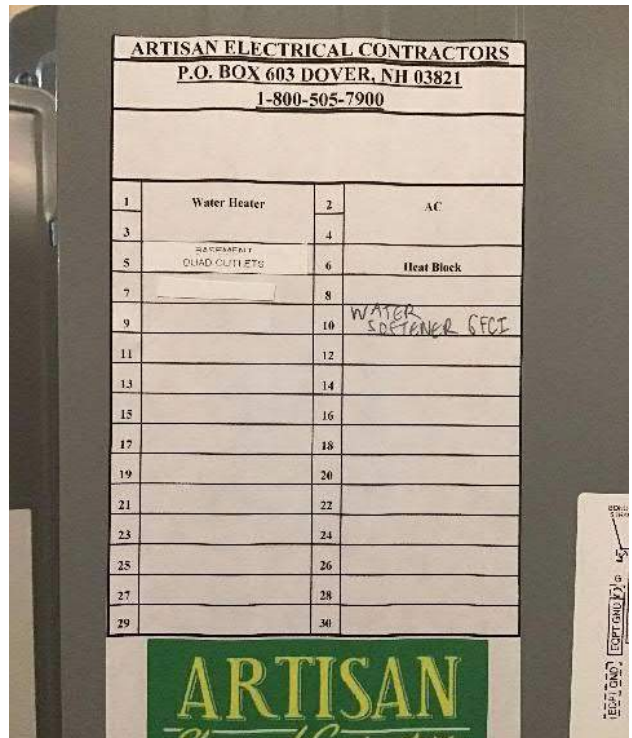 ARTISAN ELECTRICAL CONTRACTORS
P.O. BOX 603 DOVER, NH 03821
1-800-505-7900
1 Water Heater 2 AC
3 4
BASEMENT
5 QUAD OUTLETS 6 Heat Block
7 8
WATER
9 10 SOFTENER GFCI
11 12
13 14
15 16
17 18
19 20
21 22
23 24
25 26
27 28
29 30
ARTISAN
EQPT GND
EQPT GND